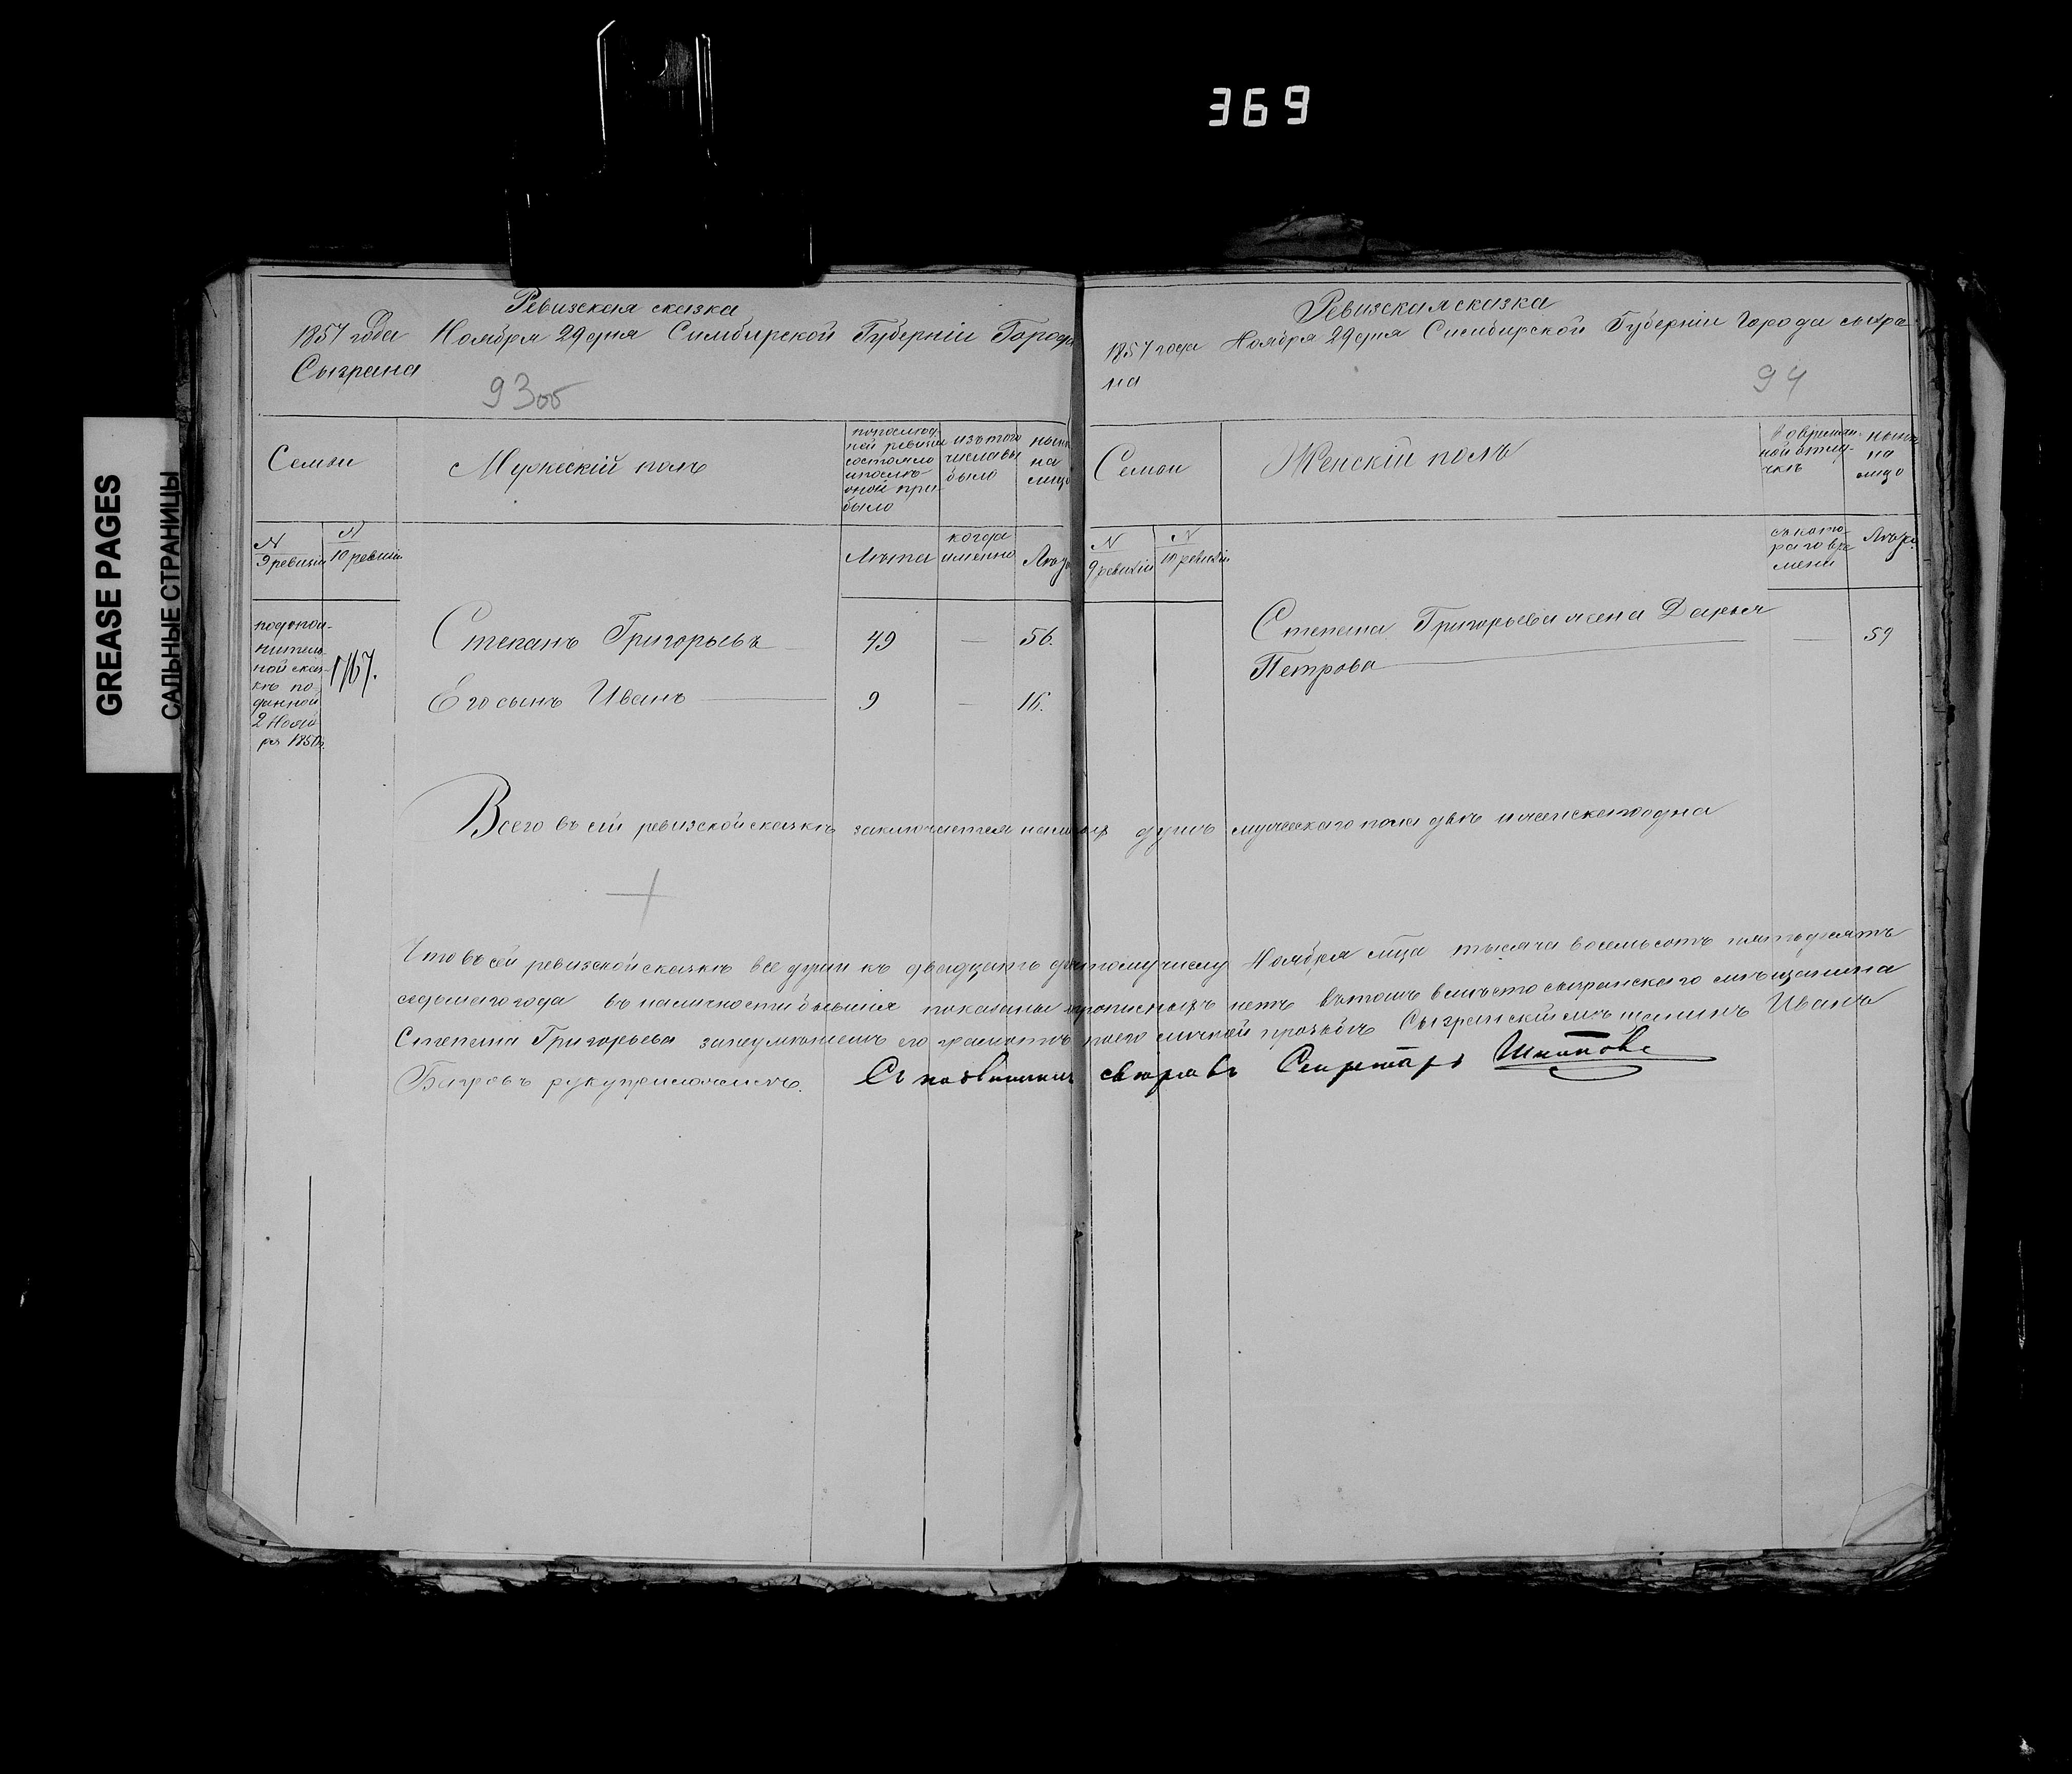 369
GREASE PAGES
САЛЬНЫЕ СТРАНИЦЫ
Ревизская сказка
1857 года Ноября 29 дня Симбирской Губернiи Города
Сызрана
93об
Семьи
Мужескiй полъ
по послед-
ней ревизiи
состояло
и после
оной при-
было
изъ того
числа вы
было
ныне
на
лицо
N
9 ревизiи
N
10 ревизiи
Лѣта
когда
именно
Лѣта
по допол-
нитель
ной сказ-
кѣ по-
данной
2 Нояб
ря 1850
1767.
Степанъ Григорьевъ
49
—
56.
Его сынъ Иванъ
9
—
16.
Ревизская сказка
1857 года Ноября 29 дня Симбирской Губернiи Города сызра-
на
94
Семьи
Женскiй полъ
во времян-
ной отлу-
чкѣ
ныне
на
лицо
N
9 ревизiи
N
10 ревизiи
съ кото-
раго вре
мени
Лѣта
Степана Григорьева жена Дарья
Петрова
—
59
Всего въ сей ревизской сказкѣ заключается наличныхъ душъ мужескаго пола двѣ и женскаго одна
Что въ сей ревизской сказкѣ все души къ двадцать девятому числу Ноября м-ца тысяча восемьсотъ пятьдесятъ
седьмаго года въ наличности бывшiя показаны и прописныхъ нетъ въ томъ вместо сызранскаго мѣщанина
Степана Григорьева за неумѣнiемъ его грамотѣ по его личной прозьбѣ Сызранскiй мѣщанинъ Иванъ
руку приложилъ. Съ подлиннымъ сверялъ Секретарь